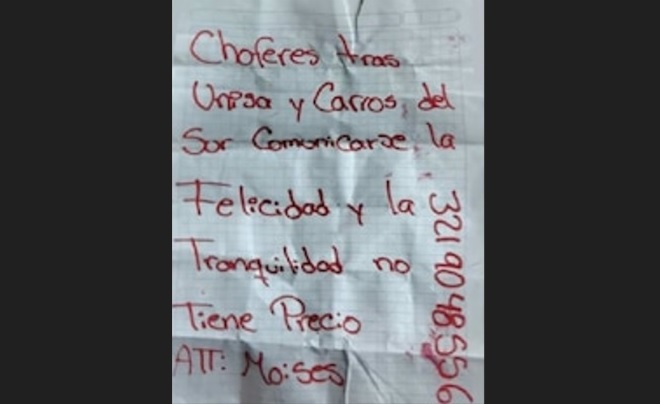 Choferes tras
Unisa y Carros, del
Sur Comonicarse, la
Felicidad y la
Tranquilidad no
Tiene Precio
ATT: Moises
3219048556